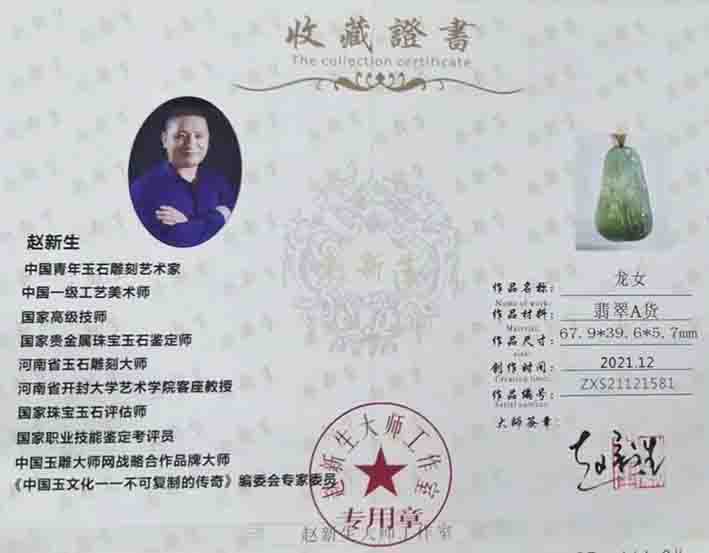 收藏證書
The collection certificate
赵新生
中国青年玉石雕刻艺术家
中国一级工艺美术师
国家高级技师
国家贵金属珠宝玉石鉴定师
河南省玉石雕刻大师
河南省开封大学艺术学院客座教授
国家珠宝玉石评估师
国家职业技能鉴定考评员
中国玉雕大师网战略合作品牌大师
《中国玉文化一一不可复制的传奇》编委会专家委员
作品名称: 龙女
Name of work:
作品材料: 翡翠A货
Material:
作品尺寸: 67.9*39.6*5.7mm
size:
创作时间: 2021.12
Creation time:
作品编号: ZXS21121581
Serial number:
大师签章:
赵新生
赵新生大师工作室
专用章
赵新生大师工作室